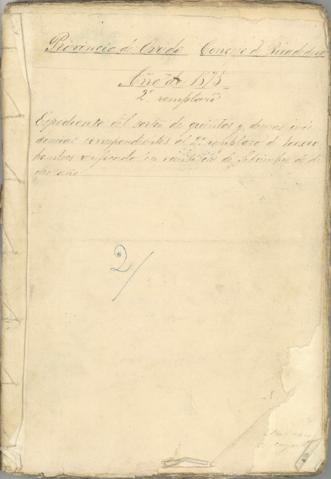 Provincia de Oviedo Concejo de Rivadedeva
Año de 1875
2º remplazo
Expediente del sorteo de quintos y demas inci
dencias correspondientes al 2º remplazo de
hombres verificado en de Setiembre de
año
2/